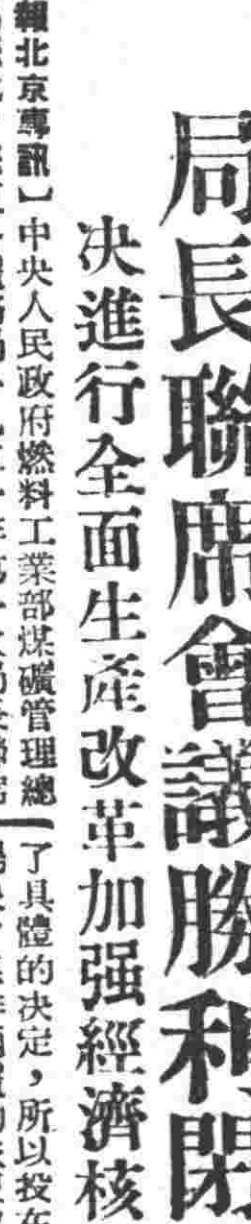 局長聯席會議勝利閉
决進行全面生產改革加强經濟核
報北京專訊】中央人民政府燃料工業部煤礦管理總
了具體的决定，所以投在